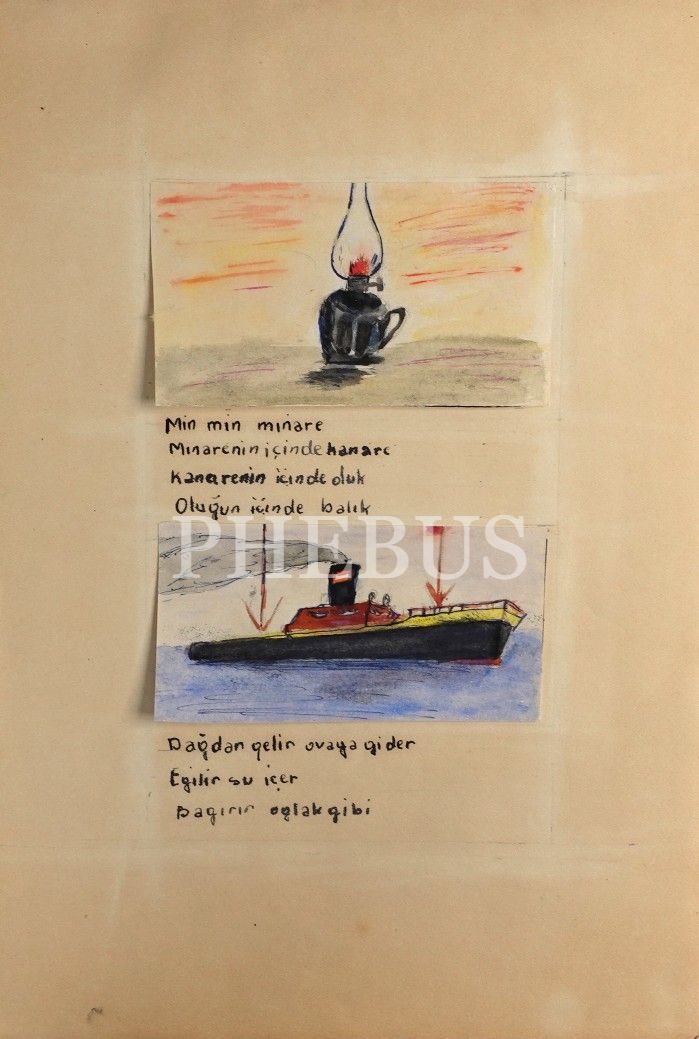 Min min minare
Minarenin içinde kanare
Kanarenin içinde oluk
Oluğun içinde balık
PHEBUS
Dağdan gelir ovaya gider
Egilir su içer
Bagırır oglak gibi